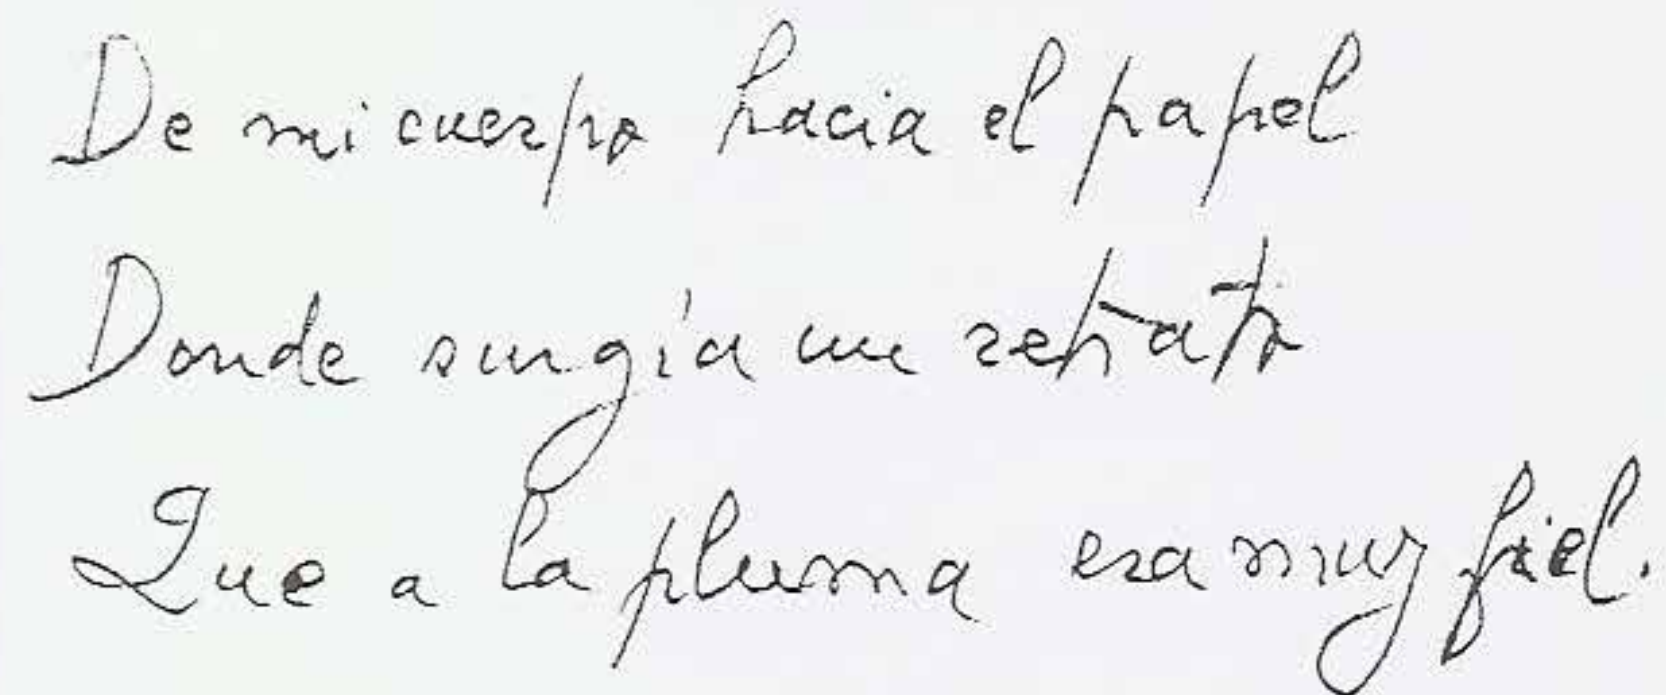 De mi cuerpo hacia el papel
Donde surgía un retrato
Que a la pluma era muy fiel.